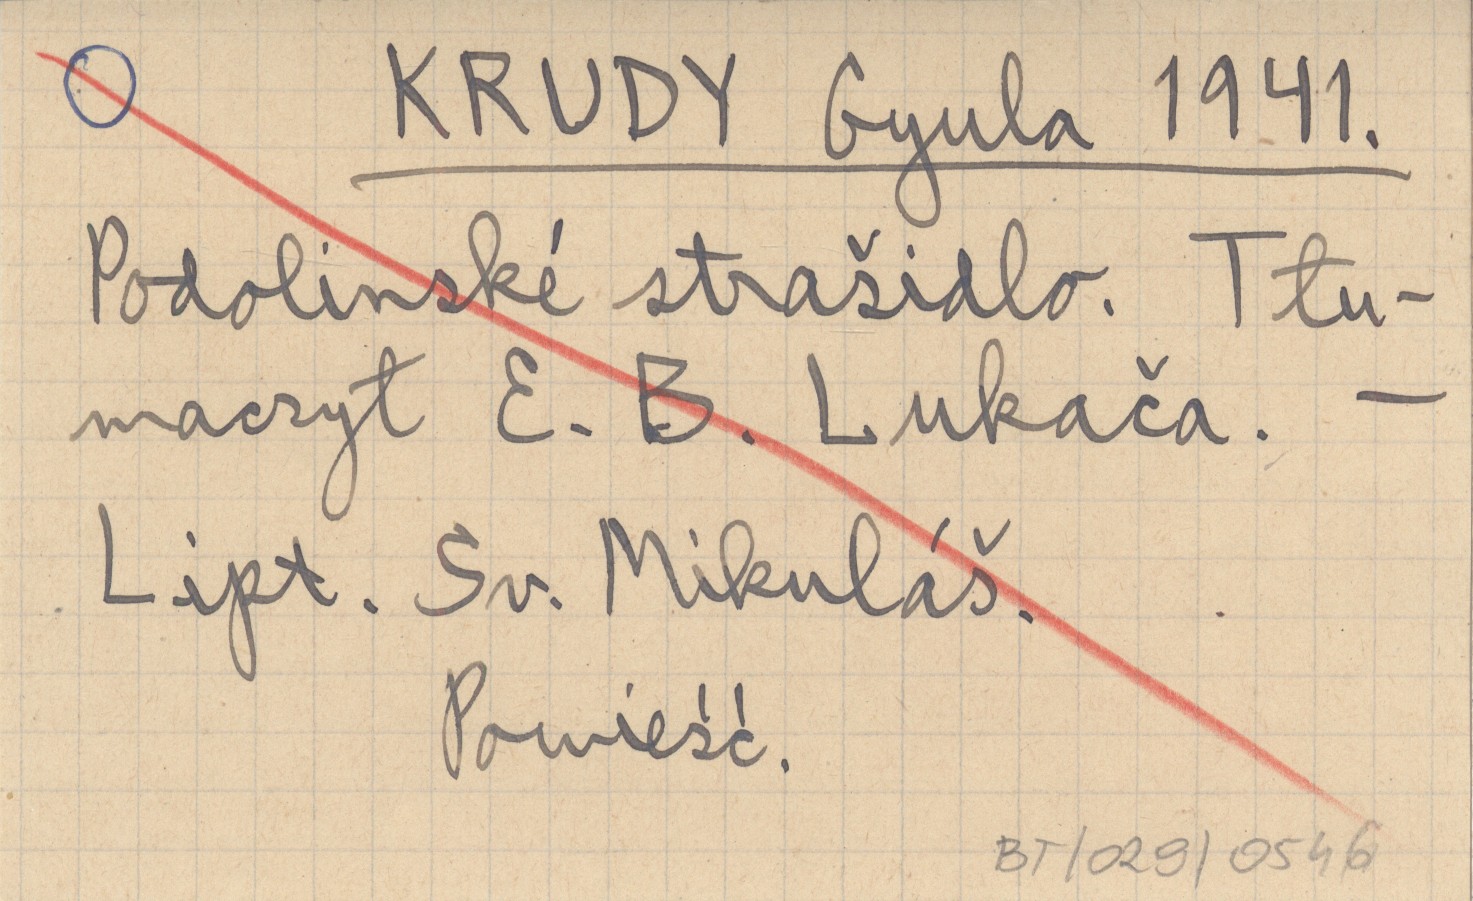 KRUDY Gyula 1941.
Podolinské strašidlo. Tłu-
maczył E. B. Lukača. —
Lipt. Sv. Mikuláš.
Powieść.
BT/029/0546